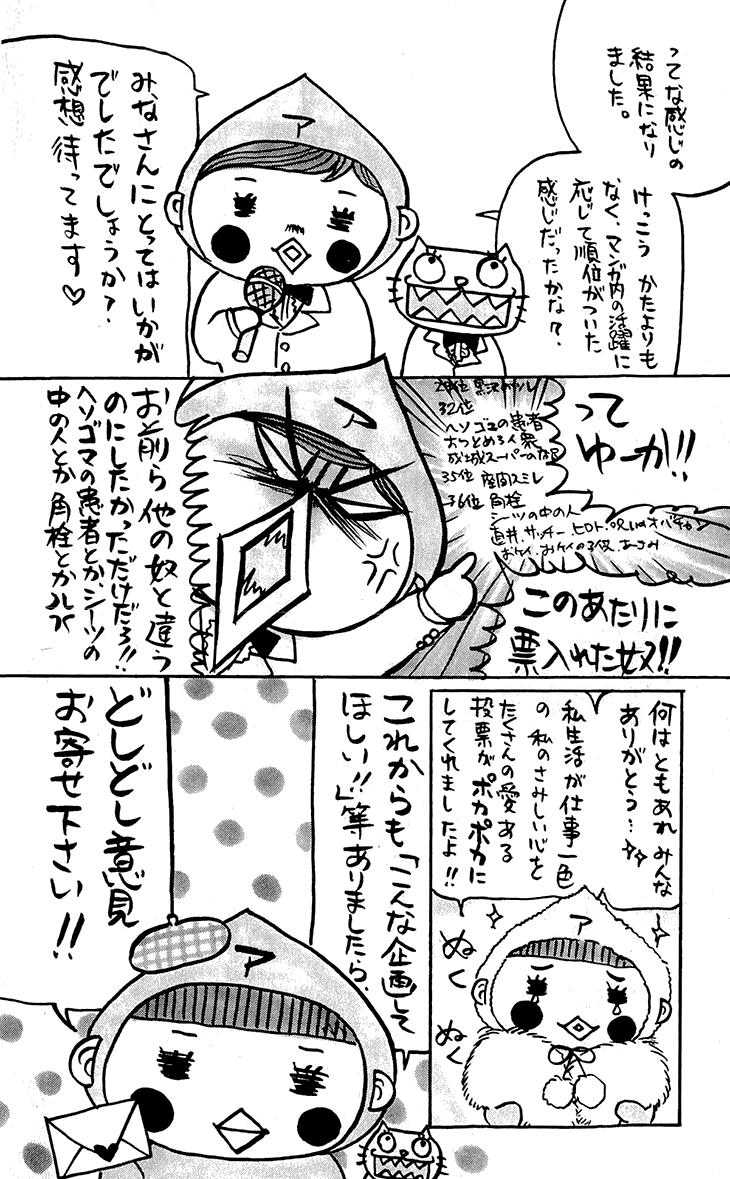 ってな感じの
結果になり
ました。
けっこう かたよりも
なく、マンガ内の活躍に
応じて順位がついた
感じだったかな？
みなさんにとってはいかが
でしたでしょうか？
感想待ってます♡
ア
って
ゆーか!!
32位
ヘソゴマの患者
35位 座間スミレ
36位 角栓
シーツの中の人
このあたりに
票入れた奴!!
ア
お前ら他の奴と違う
のにしたかっただけだろ!!
ヘソゴマの患者とか、シーツの
中の人とか角栓とかハハ
何はともあれみんな
ありがとう…
私生活が仕事一色
の私のさみしい心を
たくさんの愛ある
投票がポカポカに
してくれましたよ!!
ア
ぬく
ぬく
これからも「こんな企画して
ほしい!!」等ありましたら、
どしどし意見
お寄せ下さい!!
ア